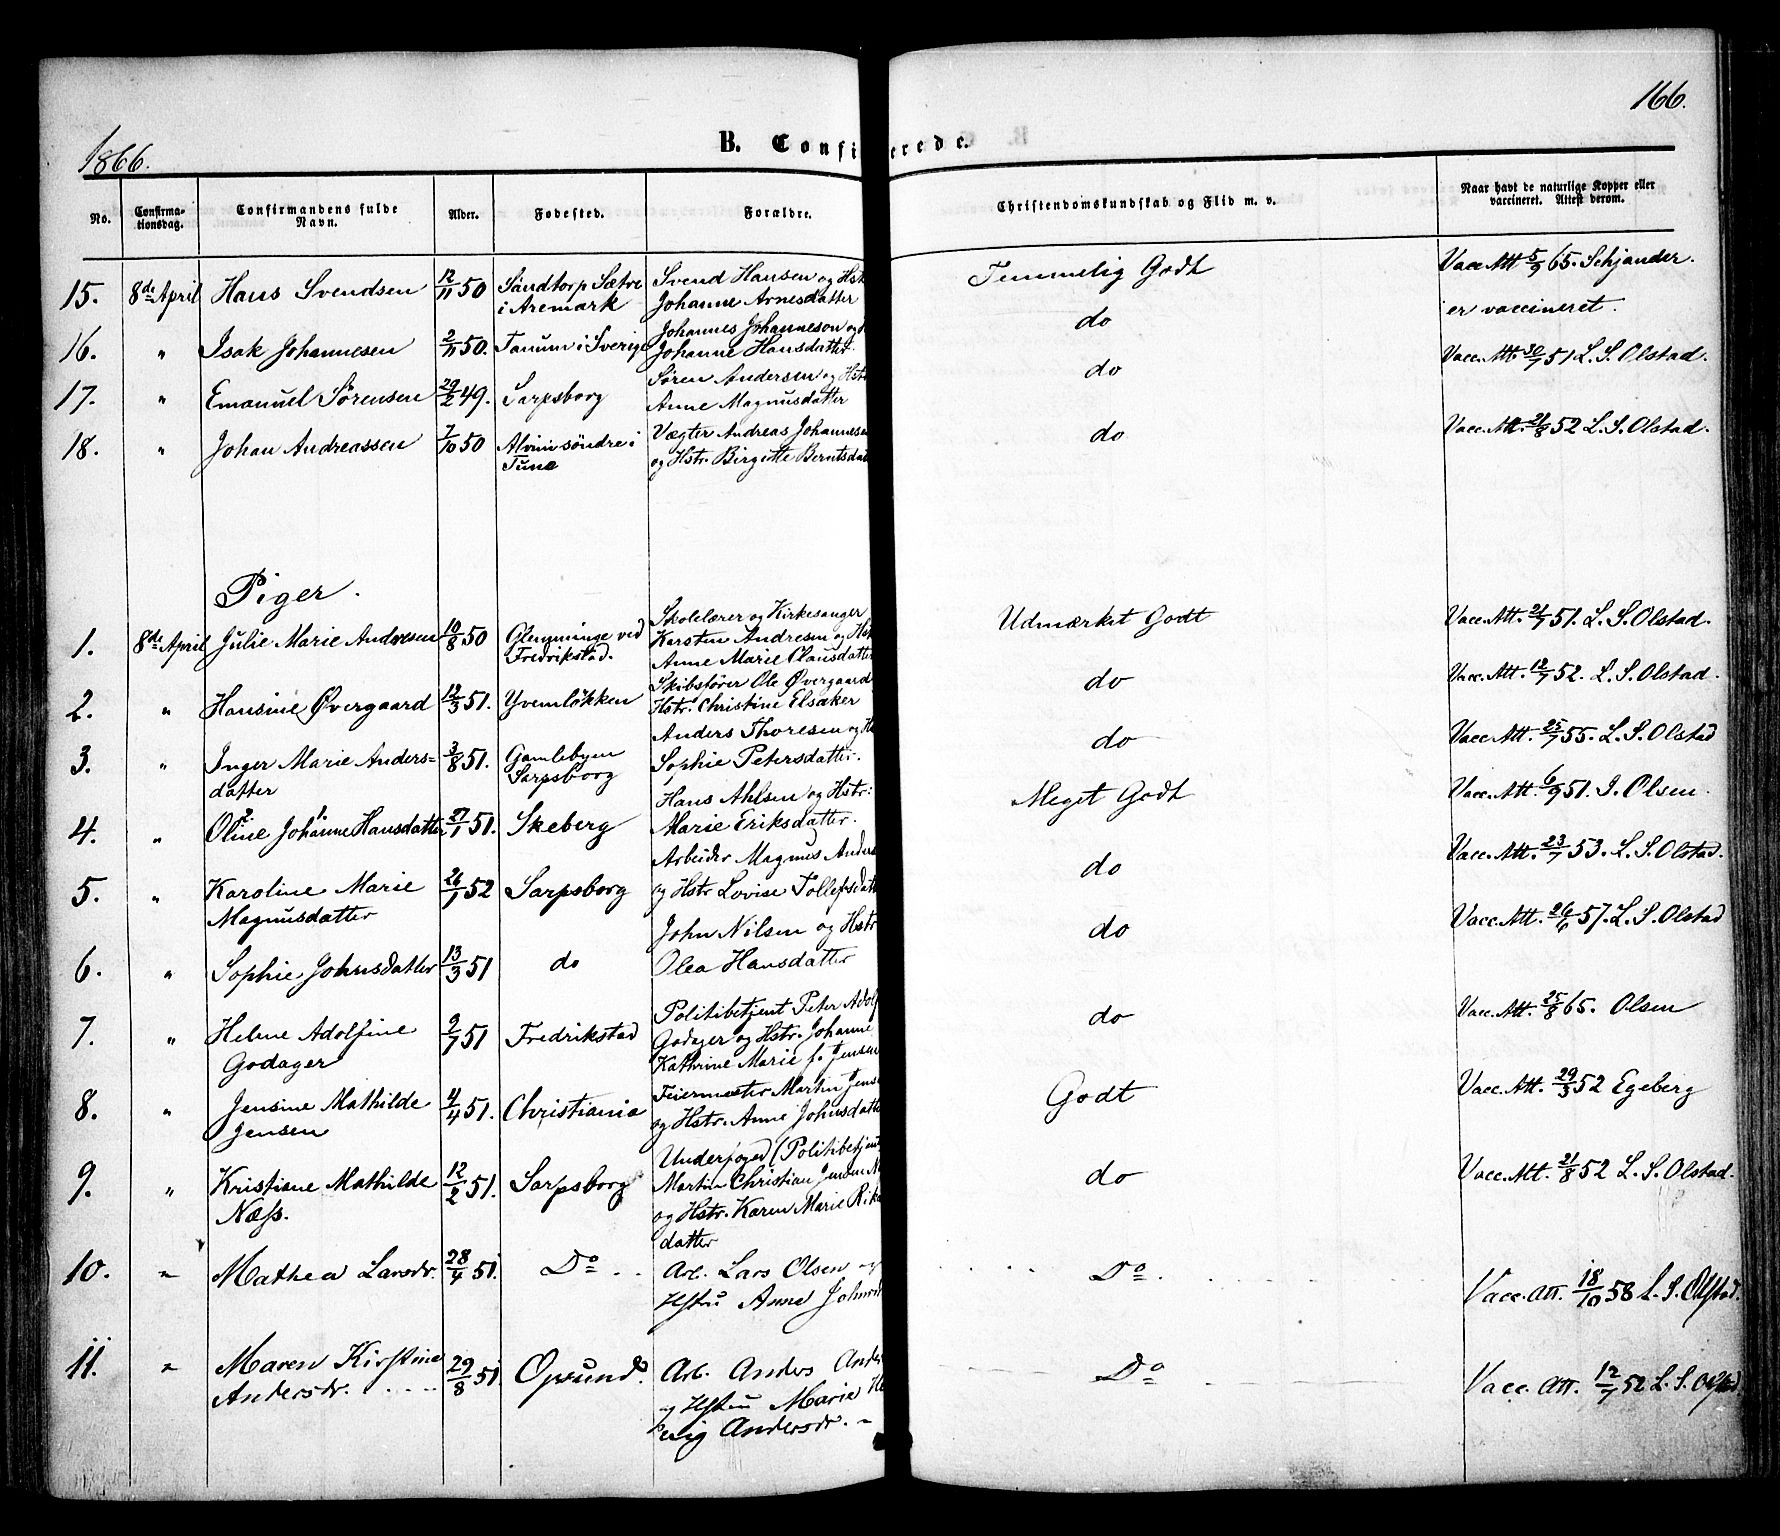 166.
1866.
B. Confi erede.
No.
Confirma-
tionsdag.
Confirmandens fulde
Navn.
Alder.
Fødested.
Forældre.
Christendomskundskab og Flid m. v.
Naar havt de naturlige Kopper eller
vaccineret. Attest derom.
15. 8de April Hans Svendsen 12/11 50 Sandtorp Sætre Svend Hansen og Hst Temmelig Godt Vacc Att 5/9 65. Schjander.
i Aremark Johanne Arnesdatter
16. " Isak Johannesen 2/11 50. Tanum i Sverige Johannes Johanneson og do er vaccineret.
Johanne Hansdatter
17. " Emanuel Sørensen 29/2 49. Sarpsborg Søren Andersen og Hstr do Vacc. Att. 30/7 51 L. S. Olstad.
Anne Magnusdatter
18. " Johan Andreassen 7/10 50 Alvim søndre i Vægter Andreas Johannesen do Vacc. Att. 21/8 52 L. S. Olstad.
Tune og Hstr. Birgitte Berntsdat
Piger.
1. 8de April Julie Marie Andresen 10/8 50 Glemminge ved Skolelærer og Kirkesanger Udmærket Godt Vacc. Att. 21/7 51. L. S. Olstad.
Fredrikstad. Karsten Andresen og Hst
Anne Marie Clausdatter
2. " Hansine Øvergaard 12/3 51. Yvenløkken Skibsfører Ole Øvergaard do Vacc. Att. 12/7 52. L. S. Olstad.
Hstr. Christine Elsaker
3. " Inger Marie Anders= 3/8 51. Gamlebyen Anders Thoresen og H do Vacc Att. 25/7 55. L. S. Olstad
datter Sarpsborg Sophie Petersdatter.
4. " Oline Johanne Hansdatter 27/1 51. Skeberg Hans Ahlsen og Hstr: Meget Godt Vacc. Att. 6/9 51. I. Olsen.
Marie Eriksdatter.
5. " Karoline Marie 26/1 52 Sarpsborg Arbeider Magnus Anders do Vacc. Att. 23/7 53. L. S. Olstad.
Magnusdatter og Hstr Lovise Tollefsdatt
6. " Sophie Johnsdatter 13/3 51 do John Nilsen og Hstr do Vacc. Att. 26/6 57. L. S. Olstad
Olea Hansdatter
7. " Helene Adolfine 9/7 51 Fredrikstad Politibetjent Peter Adolf do Vacc. Att. 25/8 65. Olsen
Godager Godager og Hstr. Johanne
Kathrine Marie f. Jensen
8. " Jensine Mathilde 4/4 51. Christiania Feiermester Martin Jens Godt Vacc. Att. 29/3 52 Egeberg
Jensen og Hstr. Anne Johnsdatter
9. " Kristiane Mathilde 12/2 51. Sarpsborg Underfoged (Politibetjent do Vacc. Att. 21/8 52 L. S. Olstad.
Næss. Martin Christian Jensen N
og Hstr. Karen Marie Rik
datter
10. " Mathea Larsdr. 28/4 51. Do Arb. Lars Olsen og Do Vacc. Att. 18/10 58 L. S. Olstad.
Hstru Anne Johnsd
11. " Maren Kirstine 29/8 51. Opsund Arb. Anders Ander Do Vacc. Att. 12/7 52 L. S. Olstad
Andersdr. og Hstru Marie
Andersdr.